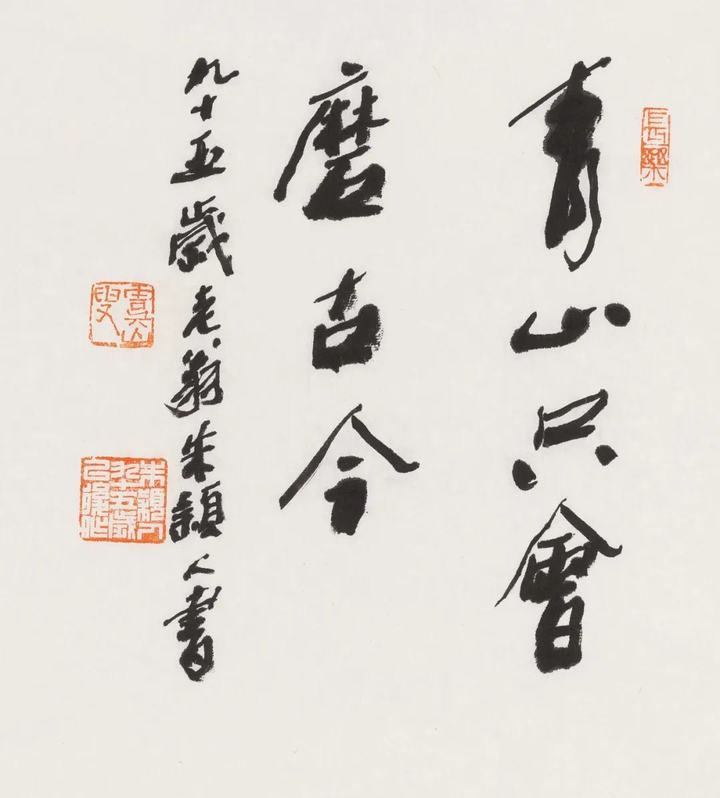 長樂
青山只會
磨古今
九十五歲老翁朱穎人書